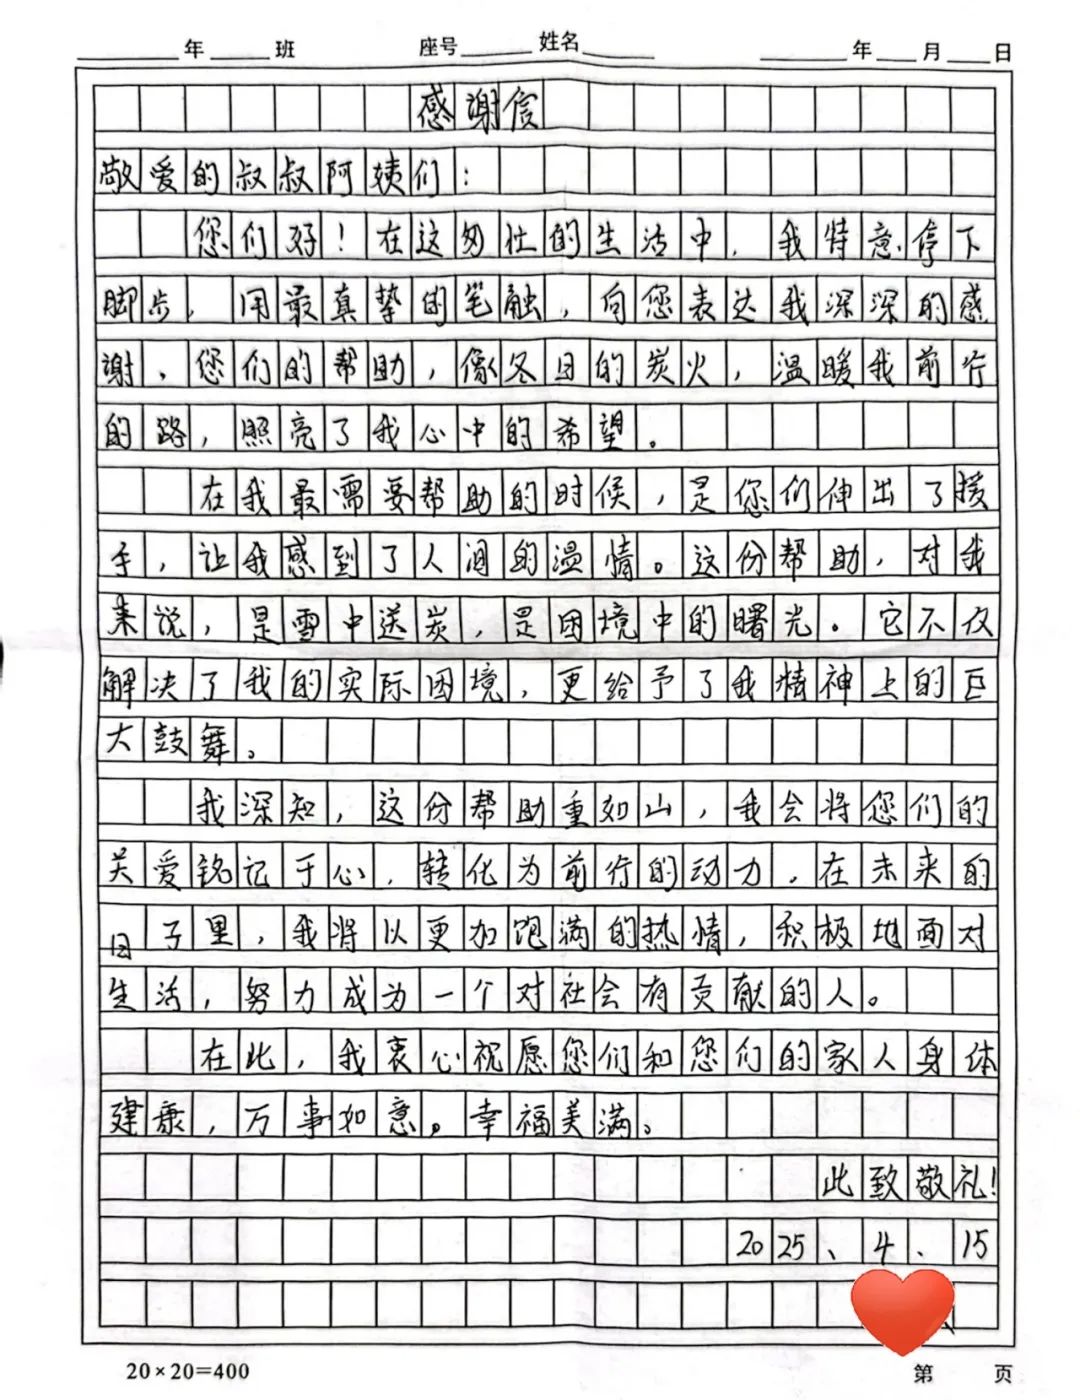 年 班 座号 姓名 年 月 日
感谢信
敬爱的叔叔阿姨们：
您们好！在这匆忙的生活中，我特意停下
脚步，用最真挚的笔触，向您表达我深深的感
谢、您们的帮助，像冬日的炭火，温暖我前行
的路，照亮了我心中的希望。
在我最需要帮助的时候，是您们伸出了援
手，让我感到了人间的温情。这份帮助，对我
来说，是雪中送炭，是困境中的曙光。它不仅
解决了我的实际困境，更给予了我精神上的巨
大鼓舞。
我深知，这份帮助重如山，我会将您们的
关爱铭记于心，转化为前行的动力，在未来的
日子里，我将以更加饱满的热情，积极地面对
生活，努力成为一个对社会有贡献的人。
在此，我衷心祝愿您们和您们的家人身体
建康，万事如意。幸福美满。
此致敬礼！
2025、4、15
20×20=400 第 页